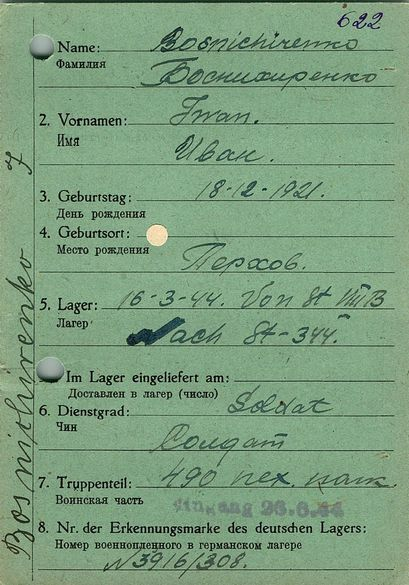 622
Name: Bosnichirenko
Фамилия
Боснихиренко
2. Vornamen: Iwan.
Имя
Иван.
3. Geburtstag: 18-12-1921.
День рождения
4. Geburtsort:
Место рождения
Перхов.
5. Lager: 16-3-44. Von St VIII B
Лагер
Nach St-344.
Im Lager eingeliefert am:
Доставлен в лагер (число)
6. Dienstgrad: Soldat
Чин
Солдат
7. Truppenteil: 490 пех полк.
Воинская часть
Eingang 26.6.44
8. Nr. der Erkennungsmarke des deutschen Lagers:
Номер военнопленного в германском лагере
N3916/308.
Bosnichirenko J